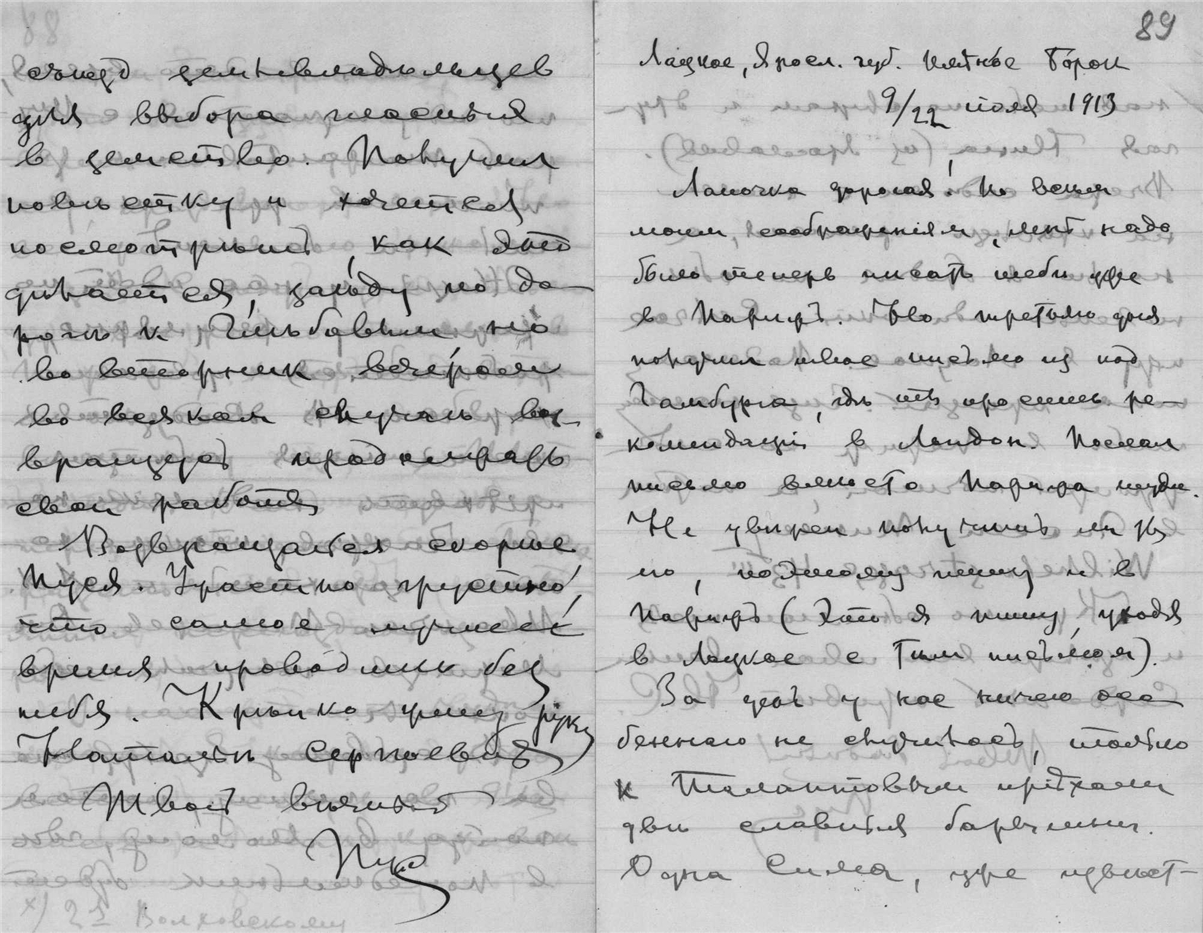 съездъ землевладѣльцевъ
для выбора гласныхъ
в земство. Получил
повѣстку и хочется
посмотрѣть, как это
дѣлается, заѣду по до-
рогѣ к Глѣбовым но
во вторник вечером
во всяком случаѣ воз-
вращусь продолжать
свои работы
Возвращайся скорѣе
Муся. Ужастно грустно,
что самое лучшее
время проводишь без
тебя. Крѣпко цѣлую руку
Натальи Сергѣевны
Твой вѣчный
х) 22 Волховскому
89
Лацкое, Яросл. губ. имѣнье Борок
9/22 июля 1913
Лапочка дорогая! По всем
моим соображеніям, мнѣ надо
было теперь писать тебѣ уже
в Париж. Но третьяго дня
получил твое письмо из под
Гамбурга, гдѣ ты просишь ре-
комендацій в Лондон. Послал
письмо вмѣсто Парижа туда.
Не увѣрен получишь ли
его, поэтому пишу и в
Париж (Это я пишу уходя
в Лацкое с тѣм письмом).
За здѣсь у нас ничего осо-
беннаго не случилось, только
к Талантовым пріѣхали
двѣ славныя барышни.
Одна Сима, уже извѣст-